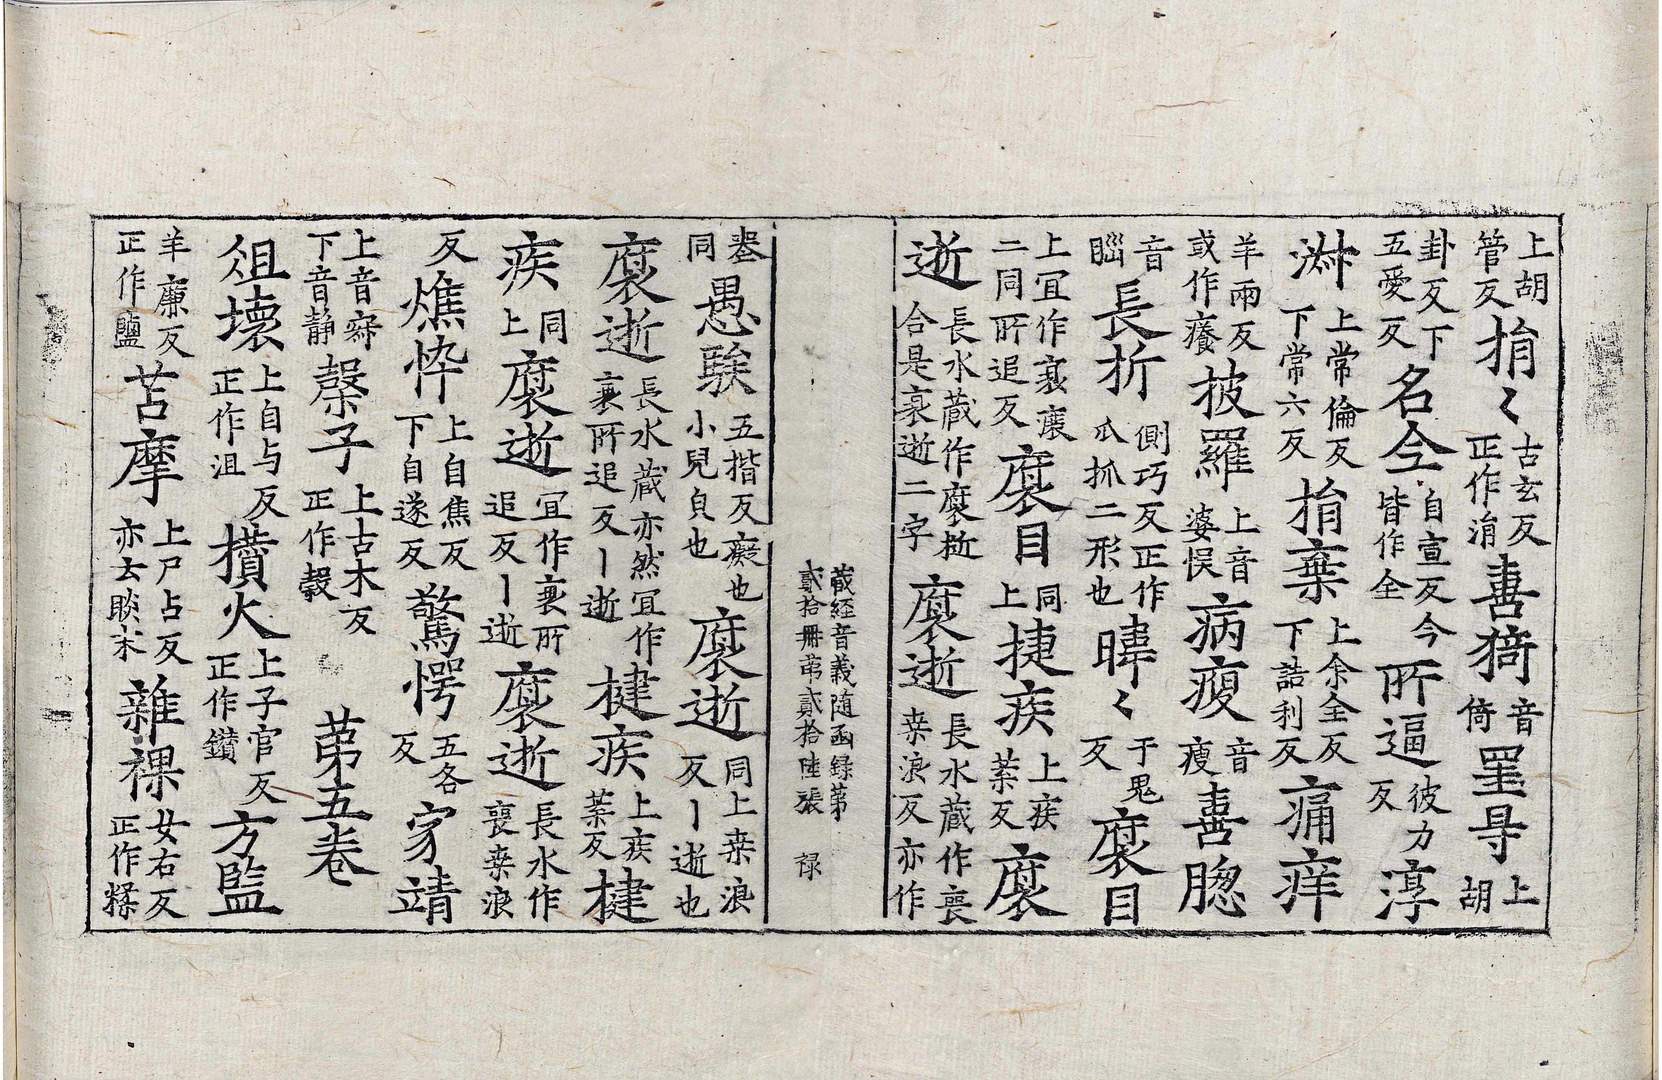 上胡管反捐〻古玄反正作涓譱猗音倚罣㝵上胡
卦反下五愛反名仝自宣反今皆作全所逼彼力反淳
淋上常倫反下常六反捐棄上余全反下詰利反痛痒
羊兩反或作癢披羅上音婆悮病瘦音瘦譱腮
音𦛁長折側巧反正作爪抓二形也暐〻于鬼反裦目
上冝作衰䙡二同所追反裦目同上捷疾上疾葉反裦
逝長水藏作裦逝合是衰逝二字裦逝長水藏作喪桒浪反亦作
藏經音義随函録苐貳拾冊苐貳拾陸張 禄
㘷同愚騃五揩反癡也小兒皃也裦逝同上桒浪反丨逝也
裦逝長水藏亦然冝作衰所追反丨逝揵疾上疾葉反揵
疾同上裦逝冝作衰所追反丨逝裦逝長水作喪桒浪
反燋悴上自焦反下自遂反驚愕五各反家靖
上音寂下音静糓子上古木反正作穀 苐五卷
俎壞上自与反正作沮攢火上子官反正作鑚方監
羊廉反正作鹽苫摩上尸占反亦云睒末雜猱女右反正作糅